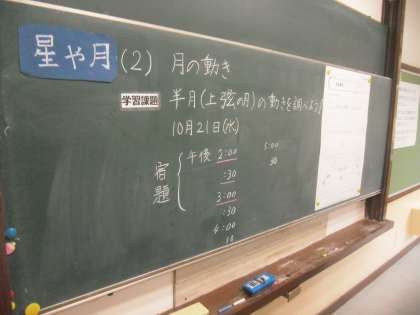 星や月 (2) 月の動き
学習課題 半月(上弦の月)の動きを調べよう
10月21日(水)
宿題
午後 2:00
:30
3:00
:30
4:00
5:00
30